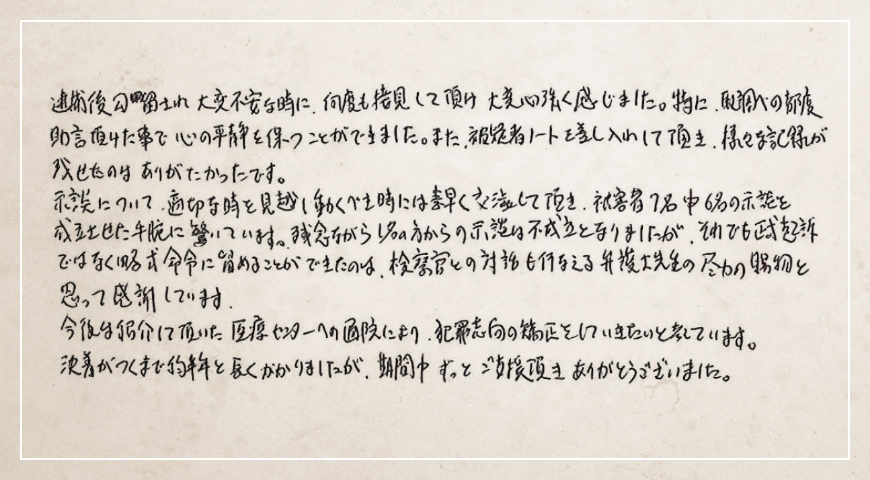 逮捕後勾留され 大変不安な時に、何度も接見して頂け 大変心強く感じました。特に、取調べの都度
助言頂けた事で 心の平静を保つことができました。また、被疑者ノートを差し入れして頂き、様々な記録が
残せたのは ありがたかったです。
示談について、適切な時を見越し動くべき時には素早く交渉して頂き、被害者7名中6名の示談を
成立させた手腕に 驚いています。残念ながら1名の方からの示談は不成立となりましたが、それでも正式起訴
ではなく略式命令に 留めることができたのは、検察官との対話も行なえる 弁護士先生の 尽力の賜物と
思って感謝しています。
今後は紹介して頂いた 医療センターへの通院により、犯罪志向の矯正をしていきたいと考えています。
決着がつくまで約半年と長くかかりましたが、期間中 ずっと ご支援頂き ありがとうございました。